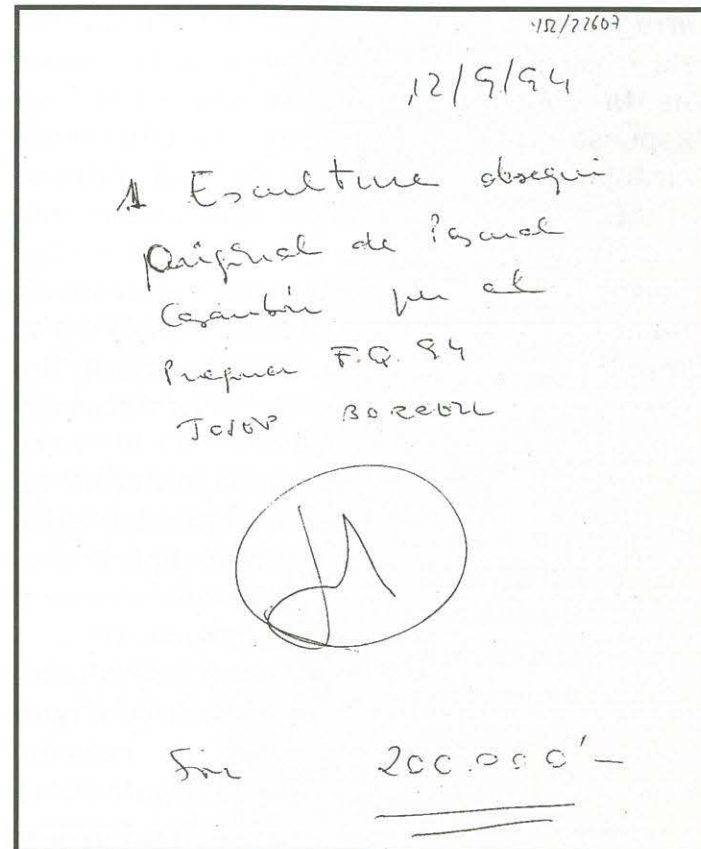 452/22607
12/9/94
1 Escultura obsequi
original de Pascual
Casaubón per al
Pregoner F.Q. 94
JOSEP BORRELL
Són 200.000'-